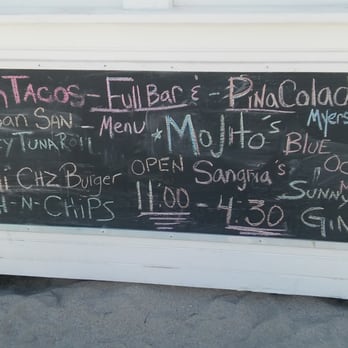 TACOS - Full BAR & - PiNA Colad
SAN - Menu *Mojito's Myers
TUNA Roll BLUE
CHZ Burger OPEN Sangria's
-N-CHiPS 11:00 - 4:30 SUNNY
GiN